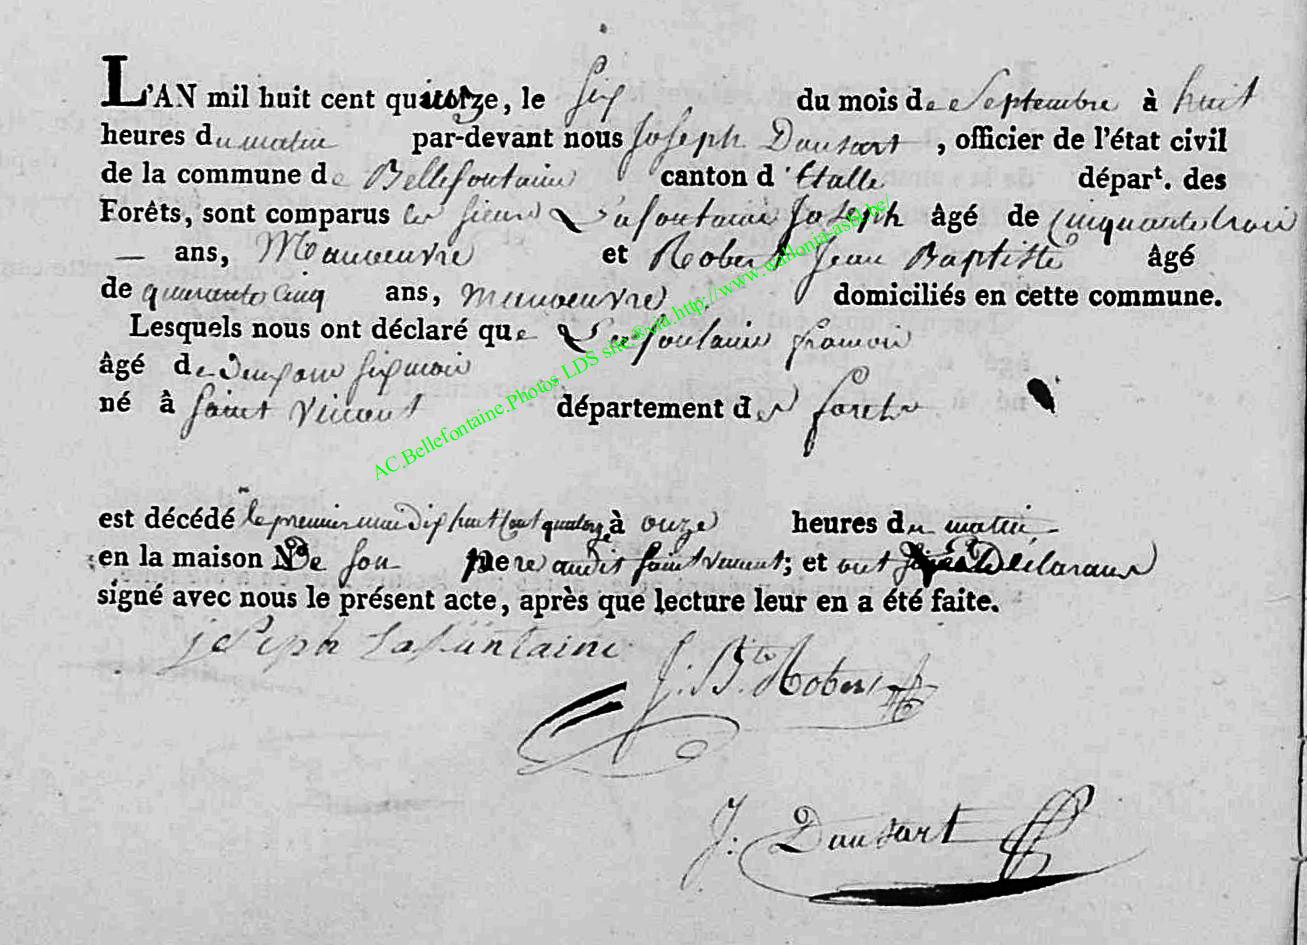 L'AN mil huit cent quatorze, le six du mois de Septembre à huit
heures du matin par-devant nous Joseph Dausart, officier de l'état civil
de la commune de Bellefontaine canton d'Etalle départ. des
Forêts, sont comparus les sieurs Lafontaine Joseph âgé de cinquante trois
— ans, Manoeuvre et Robert Jean Baptiste âgé
de quarante cinq ans, manoeuvre domiciliés en cette commune.
Lesquels nous ont déclaré que Lafontaine françois
âgé de deux ans six mois
né à Saint Vincent département des forets
est décédé le premier mai dix huit Cent quatorze à onze heures du matin
en la maison De son pere audit Saint Vincent; et ont Déclarans
signé avec nous le présent acte, après que lecture leur en a été faite.
joseph Lafontaine
J. Bte. Robert
J: Dausart
AC.Bellefontaine.Photos LDS site®via http://www.wallonia-asbl.be/